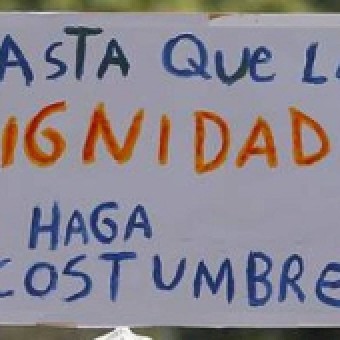 ASTA QUE LA
IGNIDAD
HAGA
COSTUMBRE